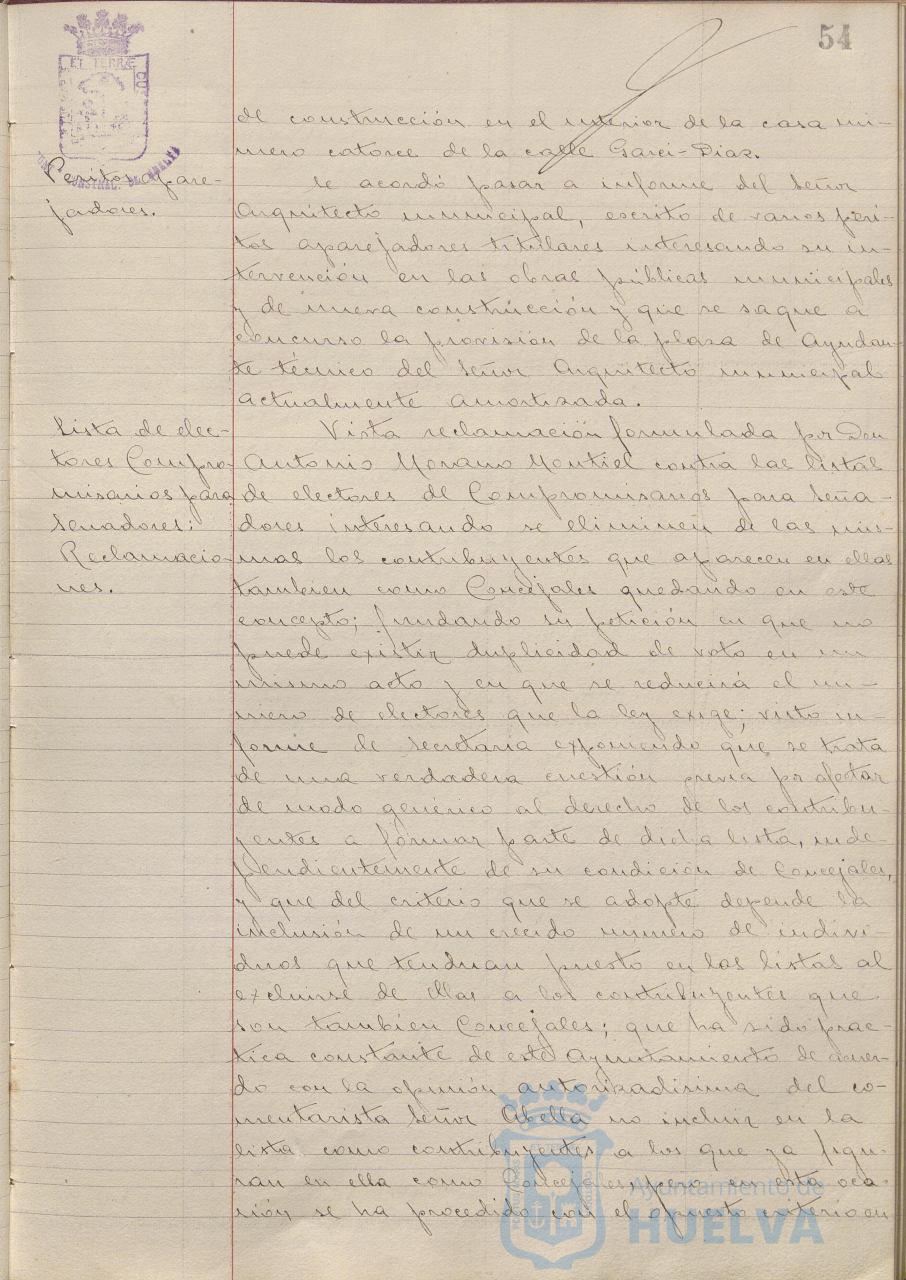 54
ET TERRÆ CU
de construcción en el interior de la casa nú-
mero catorce de la calle Garci-Diaz.
Peritos apare-
jadores.
Se acordó pasar a informe del Señor
Arquitecto municipal, escrito de varios peri-
tos aparejadores titulares interesando su in-
tervención en las obras públicas municipales
y de nueva construcción y que se saque a
concurso la provisión de la plaza de Ayudan-
te técnico del Señor Arquitecto municipal
actualmente amortizada.
Lista de elec-
tores Compro-
misarios para
Senadores:
Reclamacio-
nes.
Vista reclamación formulada por Don
Antonio Morano Montiel contra las listas
de electores de Compromisarios para Sena-
dores interesando se eliminen de las mis-
mas los contribuyentes que aparecen en ellas
tambien como Concejales quedando en este
concepto; fundando su petición en que no
puede existir duplicidad de voto en un
mismo acto y en que se reducirá el nú-
mero de electores que la ley exige; visto in-
forme de Secretaria exponiendo que se trata
de una verdadera cuestión previa por afectar
de modo genérico al derecho de los contribu-
yentes a formar parte de dicha lista, inde-
pendientemente de su condición de Concejales,
y que del criterio que se adopte depende la
inclusión de un crecido numero de indivi-
duos que tendrian puesto en las listas al
excluirse de ellas a los contribuyentes que
son tambien Concejales; que ha sido prac-
tica constante de este Ayuntamiento de acuer-
do con la opinión autorizadisima del co-
mentarista Señor Abella no incluir en la
lista como contribuyentes a los que ya figu-
ran en ella como Concejales; pero en esta oca-
sión se ha procedido con el opuesto criterio en
Ayuntamiento de
HUELVA